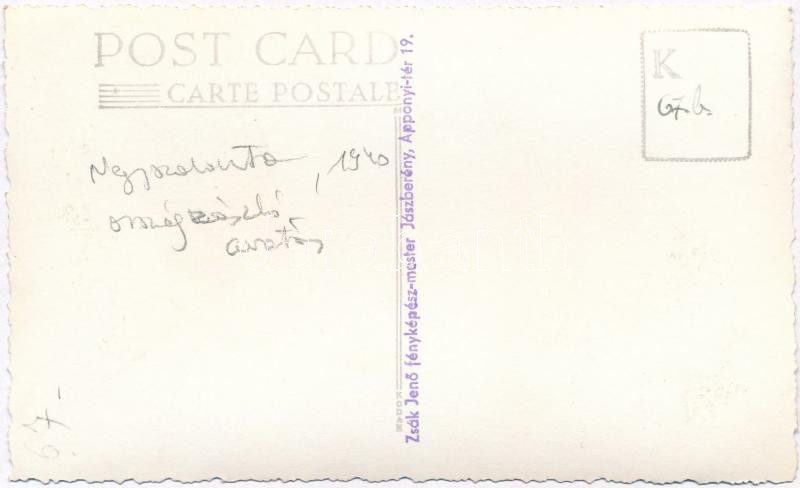 POST CARD
CARTE POSTALE
K
67.b.
Nagyszalonta, 1940
országzászló
avatás
Zsák Jenő fényképész-mester Jászberény, Apponyi-tér 19.
KODAK
67-